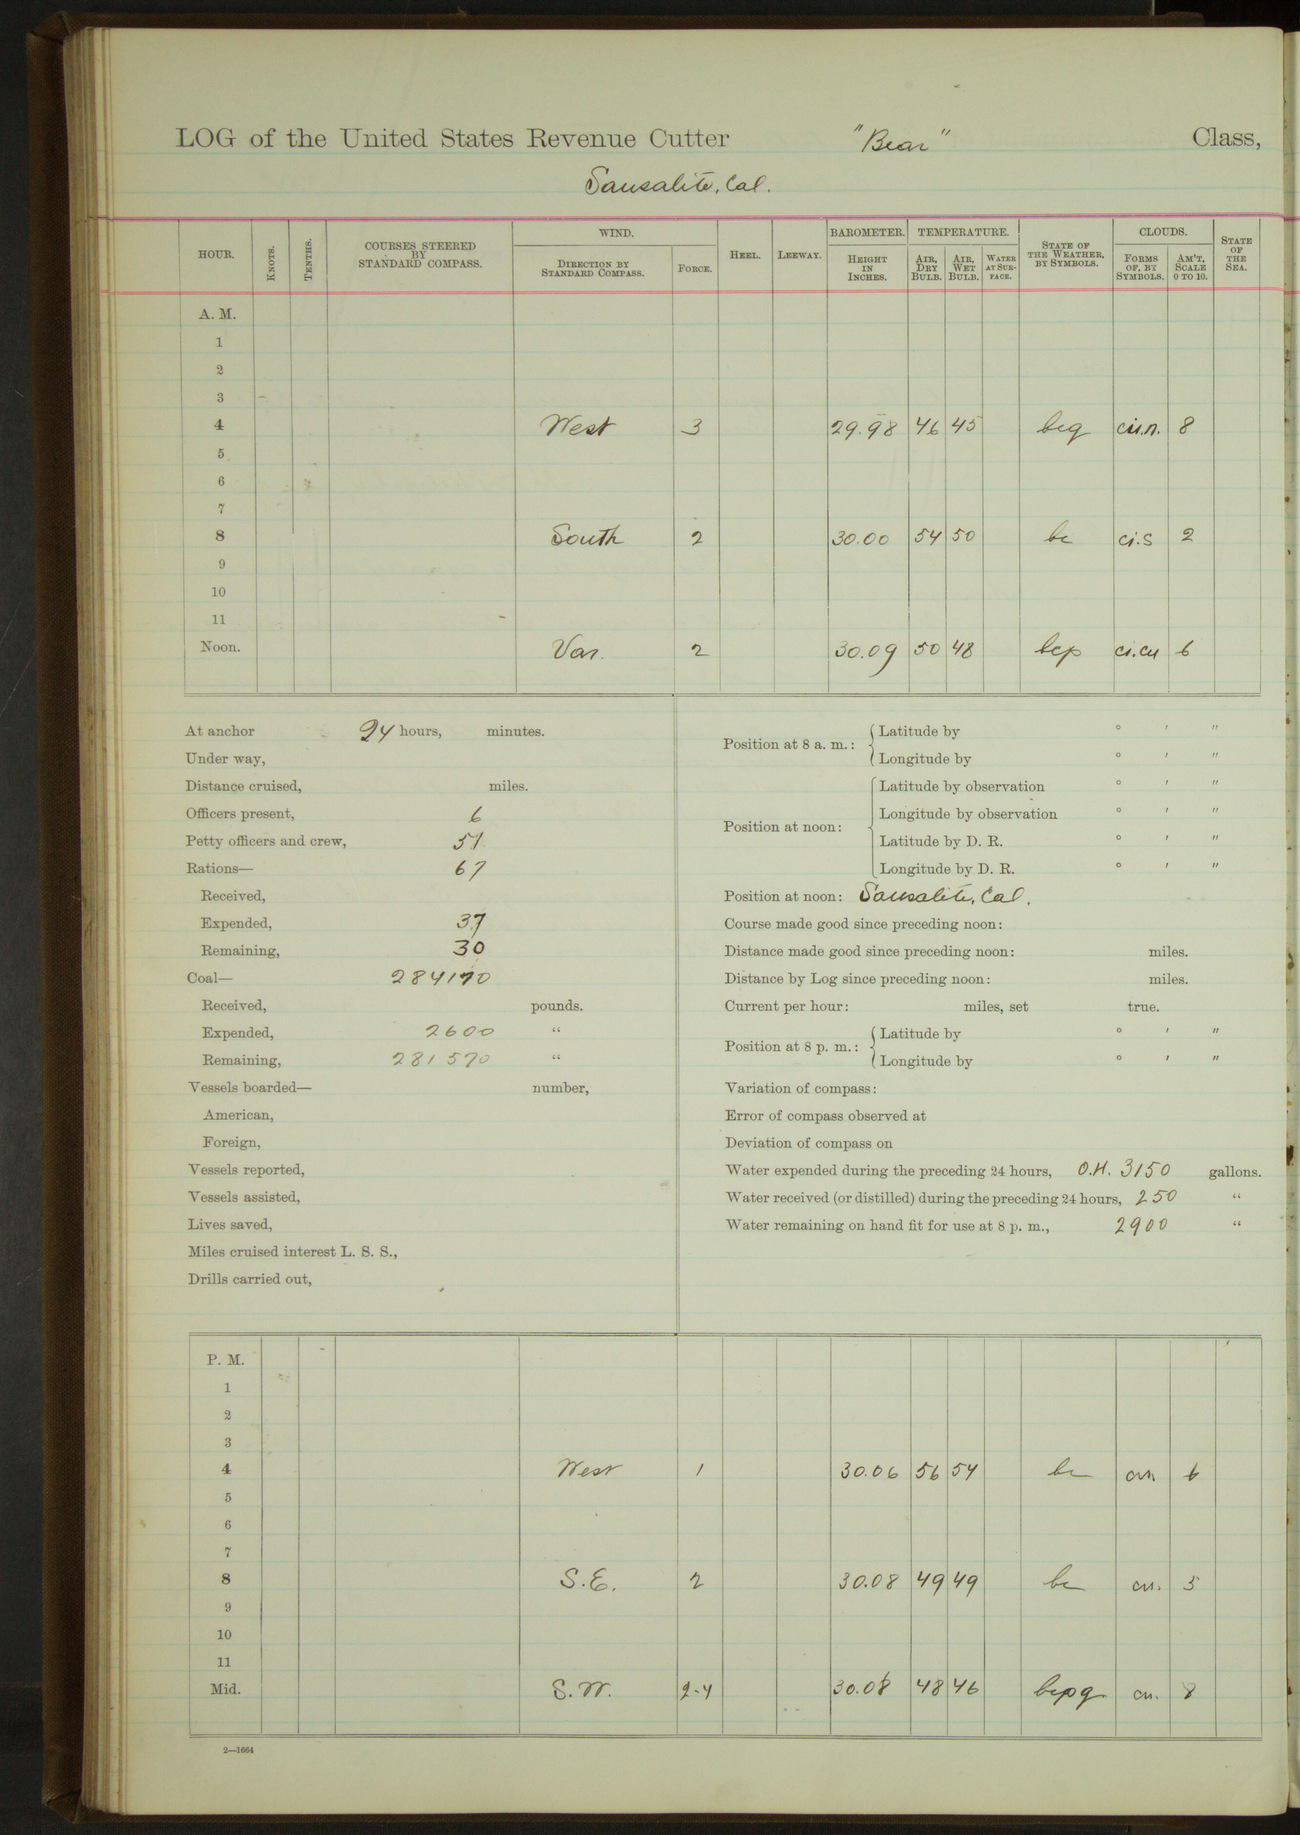 LOG of the United States Revenue Cutter "Bear" Class,
Sausalito, Cal.
HOUR. KNOTS. TENTHS. COURSES STEERED BY STANDARD COMPASS. WIND. DIRECTION BY STANDARD COMPASS. FORCE. HEEL. LEEWAY. BAROMETER. HEIGHT IN INCHES. TEMPERATURE. AIR, DRY BULB. AIR, WET BULB. WATER AT SURFACE. STATE OF THE WEATHER, BY SYMBOLS. CLOUDS. FORMS OF, BY SYMBOLS. AM'T, SCALE 0 TO 10. STATE OF THE SEA.
A. M.
1
2
3
4 West 3 29.98 46 45 bcq 8
5
6
7
8 South 2 30.00 54 50 bc ci.s 2
9
10
11
Noon. Var. 2 30.09 50 48 bcp ci.cu 6
At anchor 24 hours, minutes.
Under way,
Distance cruised, miles.
Officers present, 6
Petty officers and crew, 51
Rations— 67
Received,
Expended, 37
Remaining, 30
Coal— 284170
Received, pounds.
Expended, 2600 "
Remaining, 281570 "
Vessels boarded— number,
American,
Foreign,
Vessels reported,
Vessels assisted,
Lives saved,
Miles cruised interest L. S. S.,
Drills carried out,
Position at 8 a. m.: Latitude by ° ' "
Longitude by ° ' "
Position at noon: Latitude by observation ° ' "
Longitude by observation ° ' "
Latitude by D. R. ° ' "
Longitude by D. R. ° ' "
Position at noon: Sausalito, Cal.
Course made good since preceding noon:
Distance made good since preceding noon: miles.
Distance by Log since preceding noon: miles.
Current per hour: miles, set true.
Position at 8 p. m.: Latitude by ° ' "
Longitude by ° ' "
Variation of compass:
Error of compass observed at
Deviation of compass on
Water expended during the preceding 24 hours, O.H. 3150 gallons.
Water received (or distilled) during the preceding 24 hours, 250 "
Water remaining on hand fit for use at 8 p. m., 2900 "
P. M.
1
2
3
4 West 1 30.06 56 54 bc cu. 6
5
6
7
8 S.E. 2 30.08 49 49 bc cu. 5
9
10
11
Mid. S.W. 2-4 30.08 48 46 bcpq cu. 8
2—1664